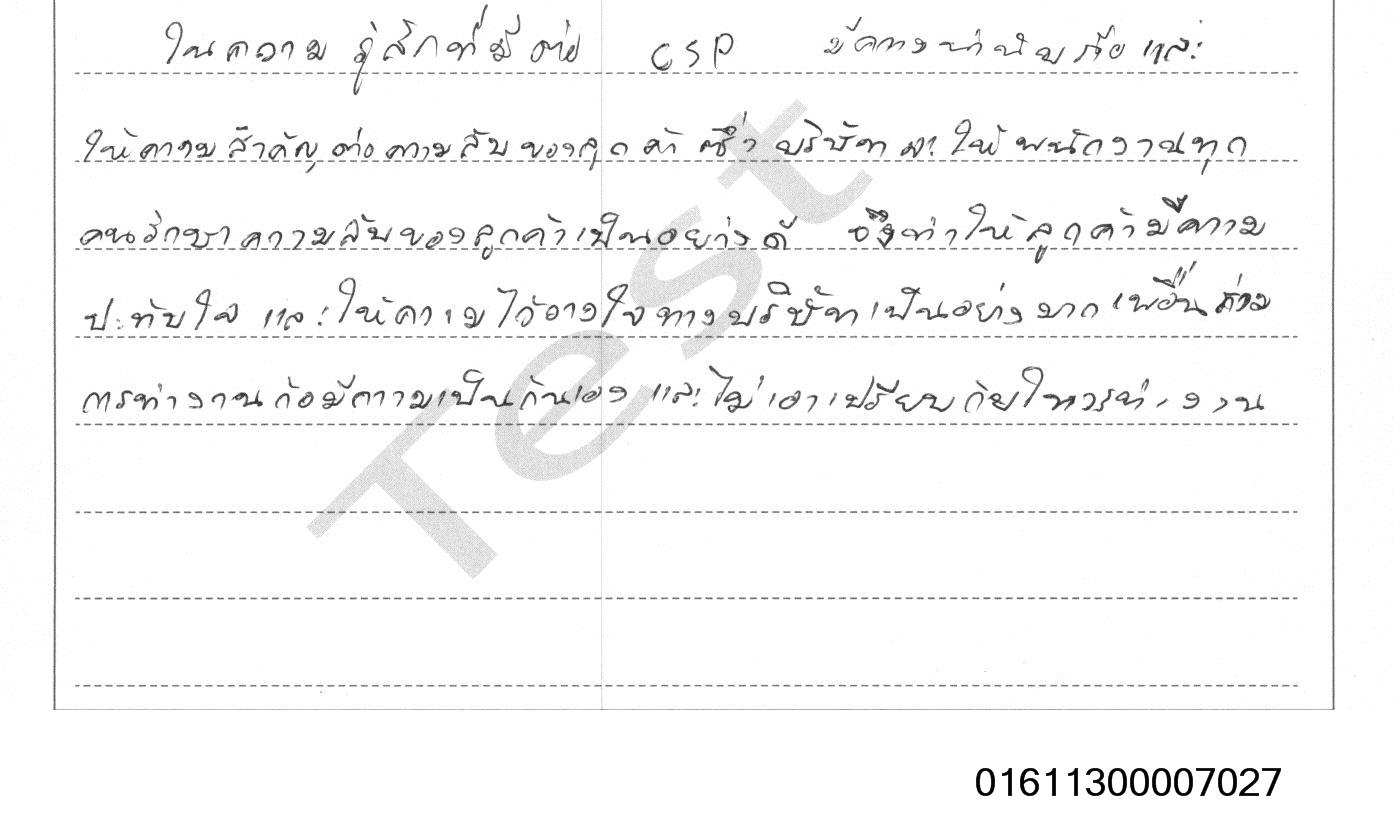 ในความรู้สึกที่มีต่อ CSP มีความน่านับถือและ
ให้ความสำคัญต่อความลับของลูกค้า ซึ่งบริษัทจะให้พนักงานทุก
คนรักษาความลับของลูกค้าเป็นอย่างดี จึงทำให้ลูกค้ามีความ
ประทับใจ และให้ความไว้วางใจทางบริษัทเป็นอย่างมาก เพื่อนร่วม
การทำงานก็มีความเป็นกันเอง และไม่เอาเปรียบกันในการทำงาน
Test
01611300007027